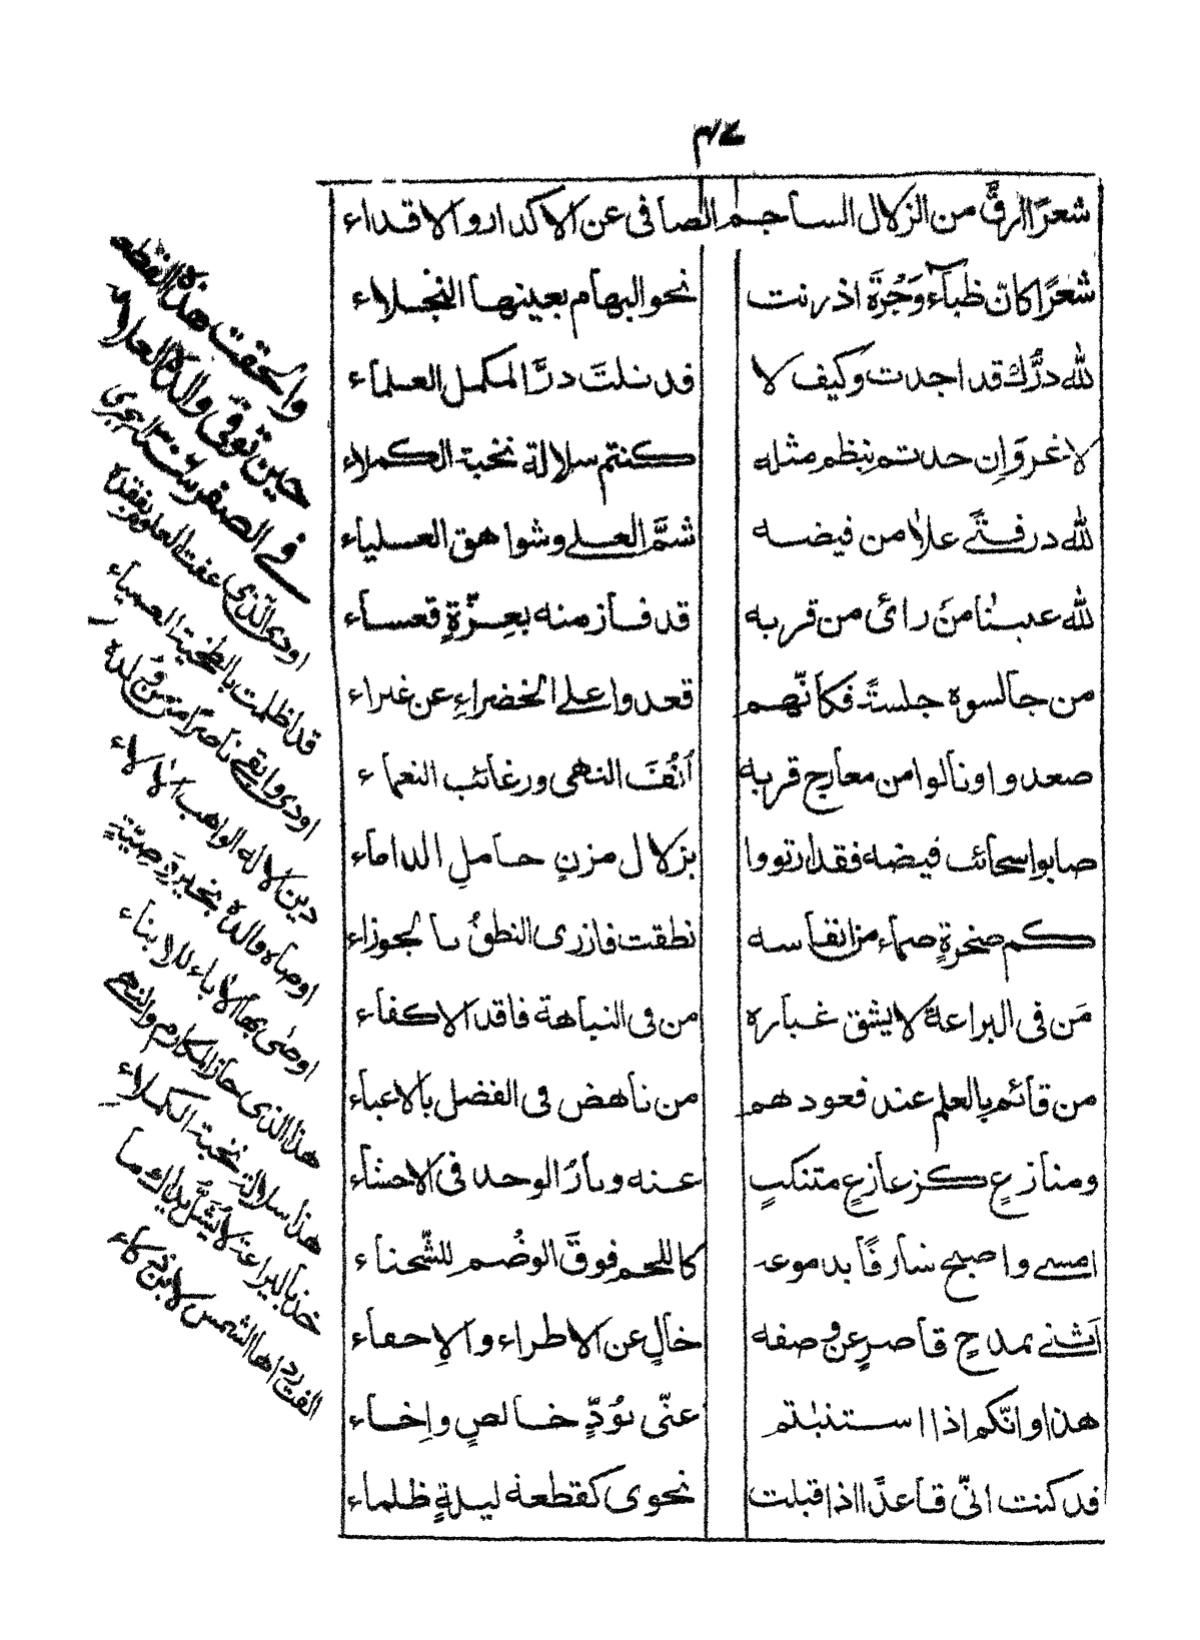 شعرًا ارقّ من الزلال الساجم الصافى عن الاكدار والاقداء
شعرًا كانّ ظباءَ وَجْرَةَ اذ رنت نحو البهام بعينها النجلاء
لله درُّك قد اجدت وكيف لا قد نلتَ درَّ المكمل العلماء
لا غروَ ان حدتم بنظم مثله كنتم سلالة نخبة الكملاء
لله در فتًى علا من فيضه شمَّ العلى وشواهق العلياء
لله عينا مَن رأى من قربه قد فاز منه بعِزّةٍ قعساء
من جالسوه جلسةً فكأنّهم قعدوا على الخضراءِ عن غبراء
صعدوا ونالوا من معارج قربه اُنُفَ النهى ورغائب النعماء
صابوا سحائب فيضه فقد ارتووا بزلال مزنٍ حاملِ الداماء
كم صخرةٍ صماء من انفاسه نطقت فازرى النطقُ بالجوزاء
مَن فى البراعة لا يشق غباره من فى النباهة فاقد الاكفاء
من قائم بالعلم عند قعودهم من ناهض فى الفضل بالاعباء
ومنازعٍ كز عازعٍ متنكبٍ عنه ونارُ الوجد فى الاحشاء
امسى واصبح شارقًا بدموعه كاللحم فوقَ الوضُم للشّحناء
اثنى بمدحٍ قاصرٍ عن وصفه خالٍ عن الاطراء والاحفاء
هذا وانّكم اذا استنبئتم عنّى بوُدٍّ خالصٍ واِخاء
قد كنت انّى قاعدًا اذ اقبلت نحوى كقطعة ليلةٍ ظلماء
والحقت هذه القطعة
حين توفى والده العلام
فى الصفر سنة هجرى
اودى الذى عفت العلوم بفقده
قد اظلمت بالطخية العمياء
اودى وابقى ناصرًا من وُلده
دين الاله الواهب الالاء
اوصاه والده بخير وصيّةٍ
اوصى بها الاباء للابناء
هذا الذى حاز المكارم والنهى
هذا سلالة نخبة الكملاء
خذ بالبراعة لا يُشَلُّ يداك وما